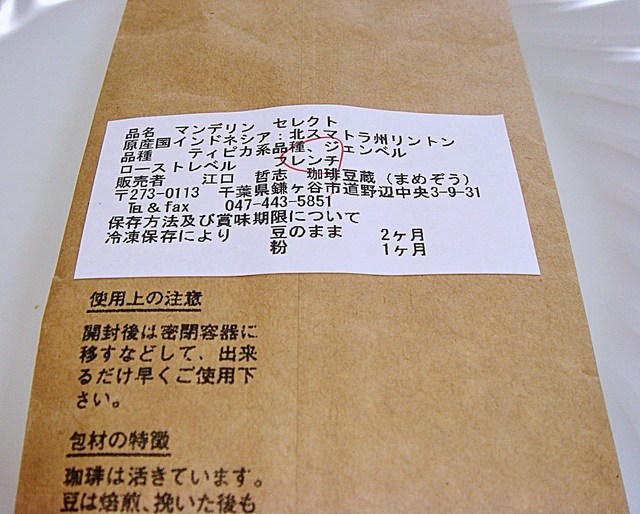 品名　マンデリン　セレクト
原産国インドネシア：北スマトラ州リントン
品種　　ティピカ系品種、ジェンベル
ローストレベル　　フレンチ
販売者　　江口　哲志　珈琲豆蔵（まめぞう）
〒273-0113　千葉県鎌ヶ谷市道野辺中央3-9-31
℡＆fax　　047-443-5851
保存方法及び賞味期限について
冷凍保存により　　豆のまま　　2ヶ月
粉　　1ヶ月
使用上の注意
開封後は密閉容器に
移すなどして、出来
るだけ早くご使用下
さい。
包材の特徴
珈琲は活きています。
豆は焙煎、挽いた後も